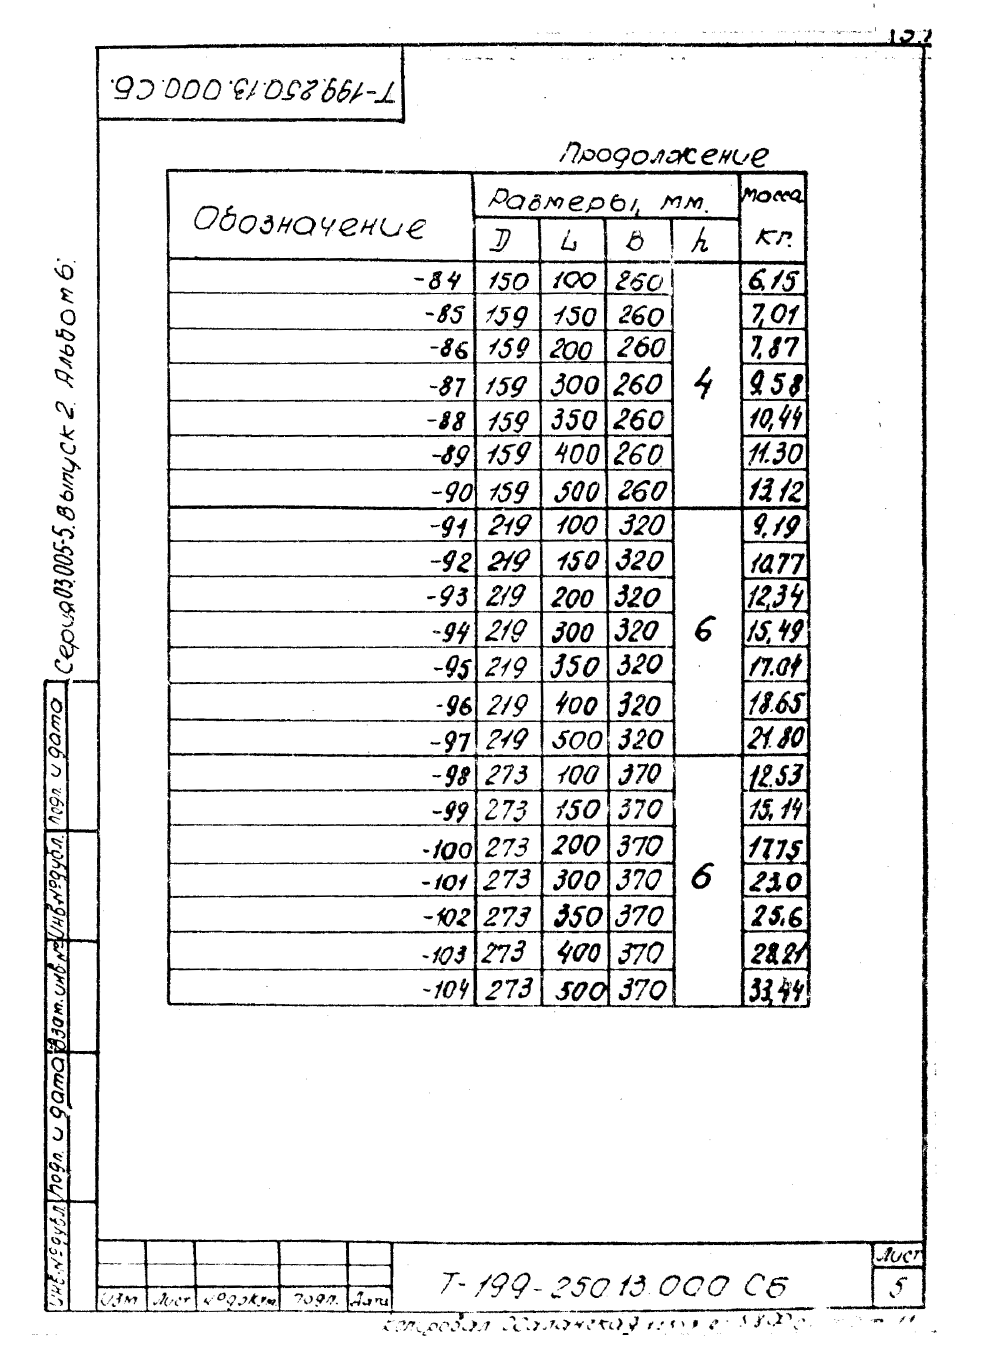 Т-199.250.13.000.СБ.
Продолжение
Обозначение Размеры, мм. Масса кг.
D L B h
-84 150 100 260 4 6,15
-85 159 150 260 7,01
-86 159 200 260 7,87
-87 159 300 260 9.58
-88 159 350 260 10,44
-89 159 400 260 11.30
-90 159 500 260 13.12
-91 219 100 320 6 9,19
-92 219 150 320 10.77
-93 219 200 320 12,34
-94 219 300 320 15,49
-95 219 350 320 17.01
-96 219 400 320 18.65
-97 219 500 320 21.80
-98 273 100 370 6 12.53
-99 273 150 370 15,14
-100 273 200 370 17.75
-101 273 300 370 23.0
-102 273 350 370 25.6
-103 273 400 370 28.21
-104 273 500 370 33,44
Серия 03.005-5. Выпуск 2. Альбом 6.
Подп. и дата
Инв.№дубл.
Взам.инв.№
Подп. и дата
Инв.№дубл.
Изм Лист №докум Подп. Дата
Т-199-250 13.000 СБ
Лист
5
Копировал